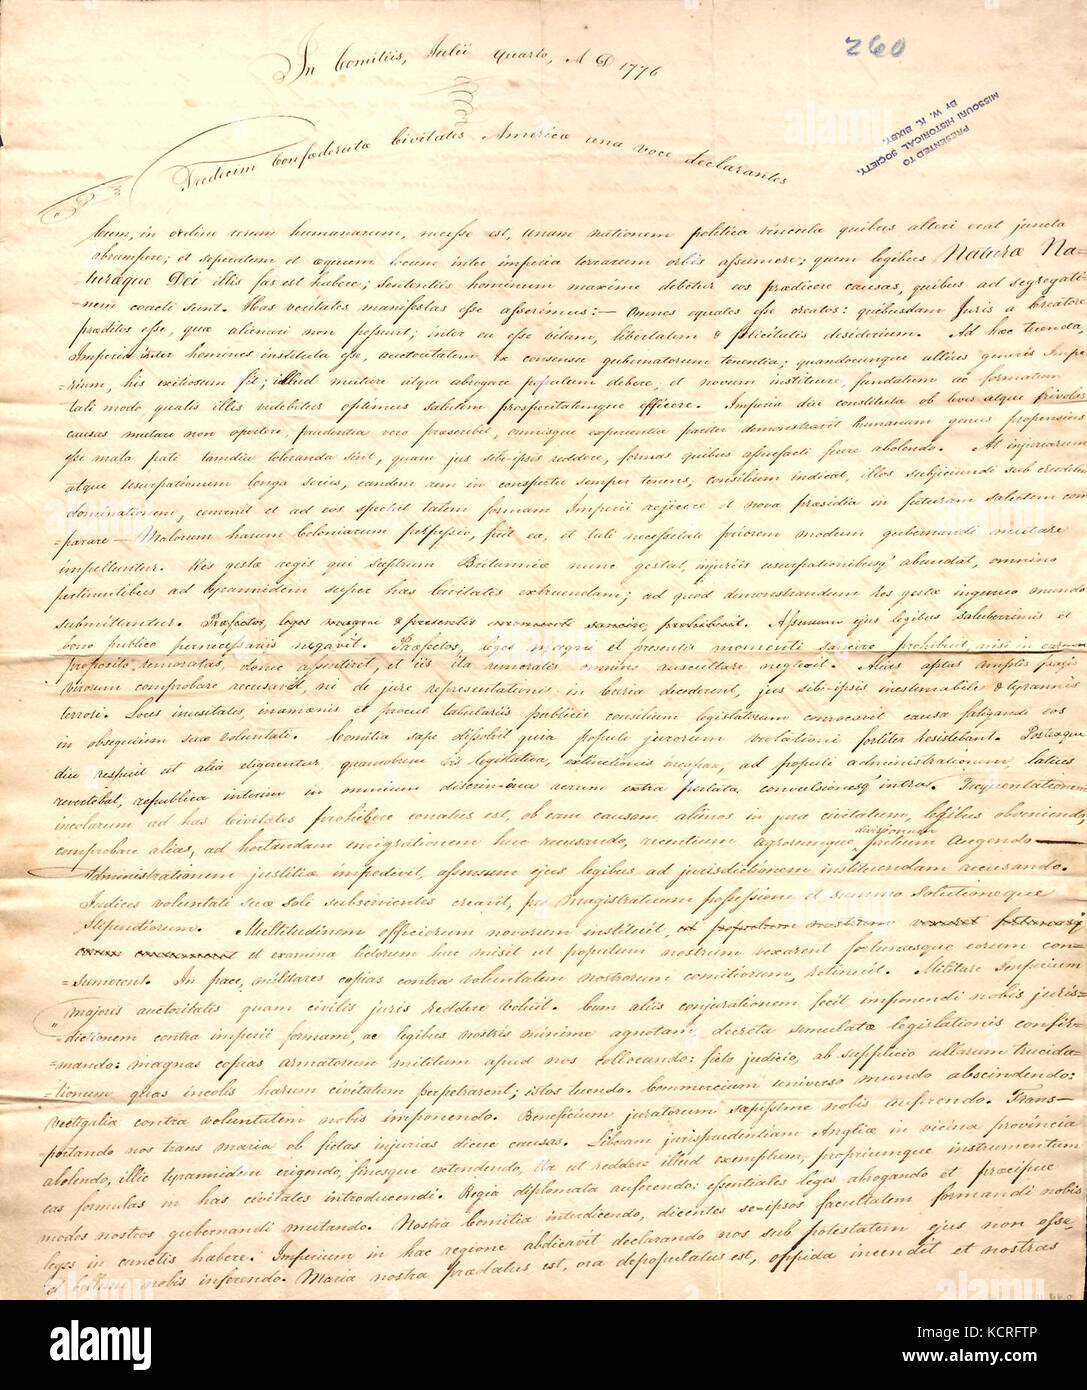 260
In Comitiis, Julii quarto, A D 1776
PRESENTED TO
MISSOURI HISTORICAL SOCIETY,
BY W. K. BIXBY.
Tredecim Confœderata Civitates America una voce declarantes
Cum, in ordine rerum humanarum, necesse est, unam nationem politica vincula quibus alteri erat juncta
abrumpere; et seperatum et æquum locum inter imperia terrarum orbis assumere; quem legibus Naturæ Na-
-turæque Dei illis fas est habere; sententiis hominum maxime debetur eos prædicere causas, quibus ad segregatio-
nem coacti sunt. Has veritates manifestas esse asserimus:— Omnes equales esse creatos: quibusdam Juris a Creatore
præditos esse, quæ alienari non possunt; inter ea esse vitam, libertatem & felicitatis desiderium. Ad hæc tuenda,
Imperia inter homines instituta esse, auctoritatem ex consensu gubernatorum tenentia; quandocunque ullius generis Impe-
-rium, his exitiosum sit; illud mutare atque abrogare populum debere, et novum instituere, fundatum ac formatum
tali modo qualis illis videbitur optimus salutem prosperitatemque efficere. Imperia diu constituta ob leves atque frivolas
causas mutare non oportere, prudentia vero præscribit, omnisque experientia pariter demonstravit humanum genus propensius
esse mala pati tamdiu toleranda sint, quam jus sibi-ipsis reddere, formas quibus assuefacti fuere abolendo. At injuriarum
atque usurpationum longa series, eandem rem in conspectu semper tenens, consilium indicat, illos subjiciendi sub crudelem
dominationem, convenit et ad eos spectat talem formam Imperii rejicere et nova præsidia in futuram salutem com
-parare — Malorum harum Coloniarum perpessio, fuit ea, et tali necessitate priorem modum gubernandi mutare
impellantur. Res gestæ regis qui sceptrum Britanniæ nunc gestat, injuriis usurpationibusq' abundat, omnino
pertinentibus ad tyrannidem super has Civitates extruendam; ad quod demonstrandum res gestæ ingenuo mundo
submittantur. Præfectos, leges magni & præsentis momenti sancire, prohibuit. Assensum ejus legibus saluberrimis et
bono publico pernecessariis negavit. Præfectos, leges magni et presentis momenti sancire prohibuit, nisi in earum
proposito, remoratas, donec assentiret, et iis ita remoratis omnino auscultare neglexit. Alias aptas amplis pagis
virorum comprobare recusavit, ni de jure representationis in Curia decederent, jus sibi-ipsis inestimabile & tyrannis
terrori. Locis inusitatis, inamœnis et procul tabulariis publicis consilium legislatorum convocavit causa fatigandi eos
in obsequium suæ voluntati. Comitia sæpe dissolvit quia populi jurorum violationi fortiter resistebant. Posteaque
diu respuit ut alia eligerentur, quamobrem vis legislativa, extinctionis incapax, ad populi administrationem latius
revertebat, republica interim in omnium discrimina rerum extra perlata convulsionesq' intra. Frequentationem
incolarum ad has Civitates prohibere conatus est, ob eam causam, alienos in jura civitatem, legibus obveniendo,
comprobare alias, ad hortandam emigrationem huc recusando, recentium agrorumque, divisionum pretium augendo —
Administrationem justitiæ impedivit, assensum ejus legibus ad jurisdictionem instituendam recusando.
Judices voluntati suæ soli subservientes creavit, pro magistratuum possessione et summo solutioneque
Stipendiorum. Multitudinem officiorum novorum instituit, et populum nostrum vexaret fortunasq
et examina lictorum huc misit ut populum nostrum vexarent fortunasque eorum con-
-sumerent. In pace, militares copias contra voluntatem nostrorum comitiorum, retinuit. Militare Imperium
majoris auctoritatis quam civilis juris reddere voluit. Cum aliis conjurationem fecit imponendi nobis juris-
-dictionem contra imperii formam, ac legibus nostris minime agnotam; decreta simulatæ legislationis confir-
-mando: magnas copias armatorum militum apud nos collocando: falso judicio, ab supplicio ullarum trucida-
-tionum quas incolis harum civitatem perpetrarent; istos tuendo. Commercium universo mundo abscindendo:
vectigalia contra voluntatem nobis imponendo. Beneficium juratorum sæpissime nobis auferendo. Trans-
-portando nos trans maria ob fictas injurias dicere causas. Liberam jurisprudentiam Angliæ in vicina provincia
abolendo, illic tyrannidem erigendo, finesque extendendo, ita ut reddere illud exemplum, propriumque instrumentum
eas formulas in has civitates introducendi. Regia diplomata auferendo: essentiales leges abrogando et præcipue
modos nostros gubernandi mutando. Nostra Comitia interdicendo, dicentes se-ipsos facultatem formandi nobis
leges in cunctis habere. Imperium in hac regione abdicavit declarando nos sub potestatem ejus non esse,
et bellum nobis inferendo. Maria nostra prædatus est, ora depopulatus est, oppida incendit et nostras
alamy
Image ID: KCRFTP
www.alamy.com